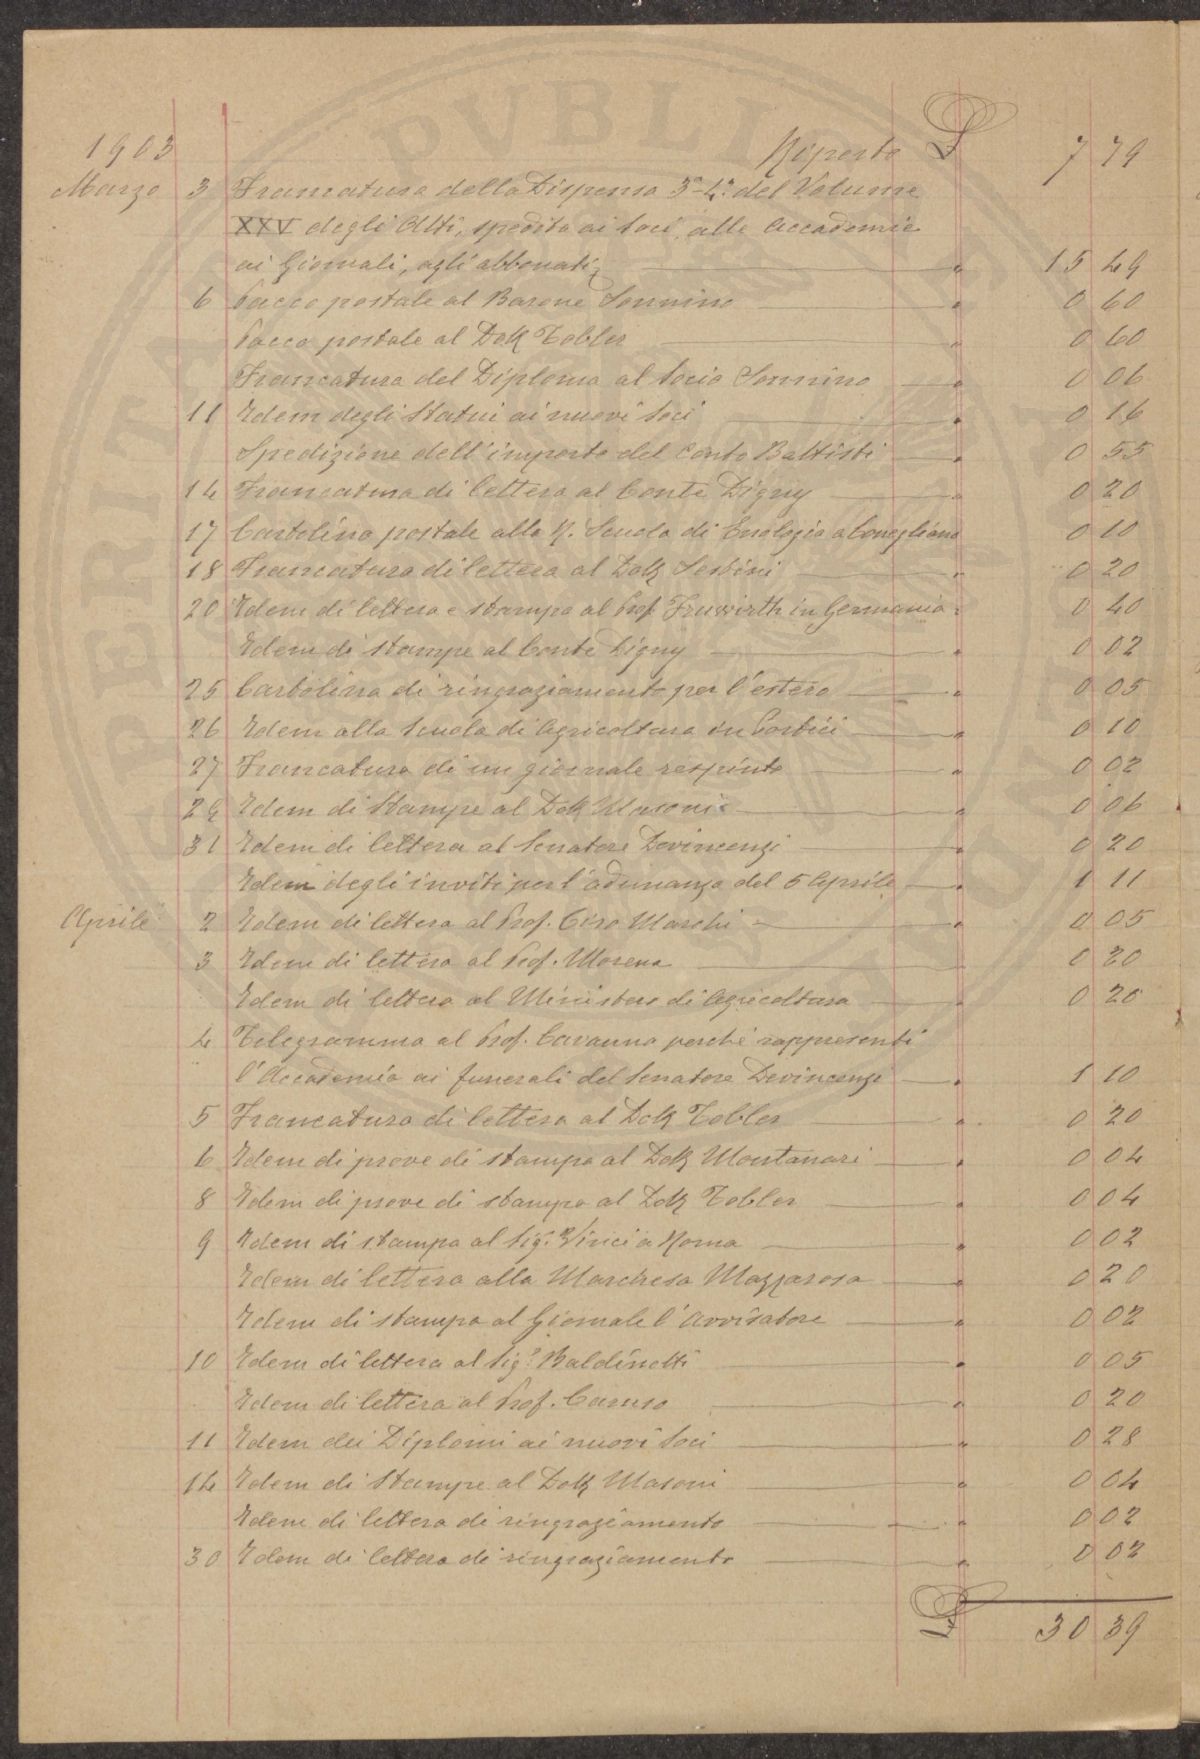 1903 Riporto L 7 79
Marzo 3 Francatura della Dispensa 3ª-4ª del Volume
XXV degli Atti, spedita ai Soci, alle Accademie
ai Giornali, agli abbonati " 15 49
6 Pacco postale al Barone Sonnino " 0 60
Pacco postale al Dott Tobler " 0 60
Francatura del Diploma al Socio Sonnino " 0 06
11 Idem degli Statui ai nuovi Soci " 0 16
Spedizione dell'importo del Conto Battisti " 0 55
14 Francatura di lettera al Conte Digny " 0 20
17 Cartolina postale alla R. Scuola di Enologia a Conegliano 0 10
18 Francatura di lettera al Dott Sestini " 0 20
20 Idem di lettera e stampa al Prof Fruwirth in Germania " 0 40
Idem di stampe al Conte Digny " 0 02
25 Cartolina di ringraziamento per l'estero " 0 05
26 Idem alla Scuola di Agricoltura in Portici " 0 10
27 Francatura di un giornale respinto " 0 02
29 Idem di Stampe al Dott Masoni " 0 06
31 Idem di lettera al Senatore Devincenzi " 0 20
Idem degli inviti per l'adunanza del 5 Aprile " 1 11
Aprile 2 Idem di lettera al Prof. Ciro Marchi " 0 05
3 Idem di lettera al Prof. Morena 0 20
Idem di lettera al Ministero di Agricoltura " 0 20
4 Telegramma al Prof. Cavanna perchè rappresenti
l'Accademia ai funerali del Senatore Devincenzi " 1 10
5 Francatura di lettera al Dott Tobler " 0 20
6 Idem di prove di stampa al Dott Montanari " 0 04
8 Idem di prove di stampa al Dott Tobler " 0 04
9 Idem di stampa al Sig. Vinci a Roma " 0 02
Idem di lettera alla Marchesa Mazzarosa " 0 20
Idem di stampa al Giornale l'Avvisatore " 0 02
10 Idem di lettera al Sig. Baldinotti " 0 05
Idem di lettera al Prof. Caruso " 0 20
11 Idem dei Diplomi ai nuovi Soci " 0 28
14 Idem di Stampe al Dott Masoni " 0 04
Idem di lettera di ringraziamento " 0 02
30 Idem di lettera di ringraziamento " 0 02
L 30 39